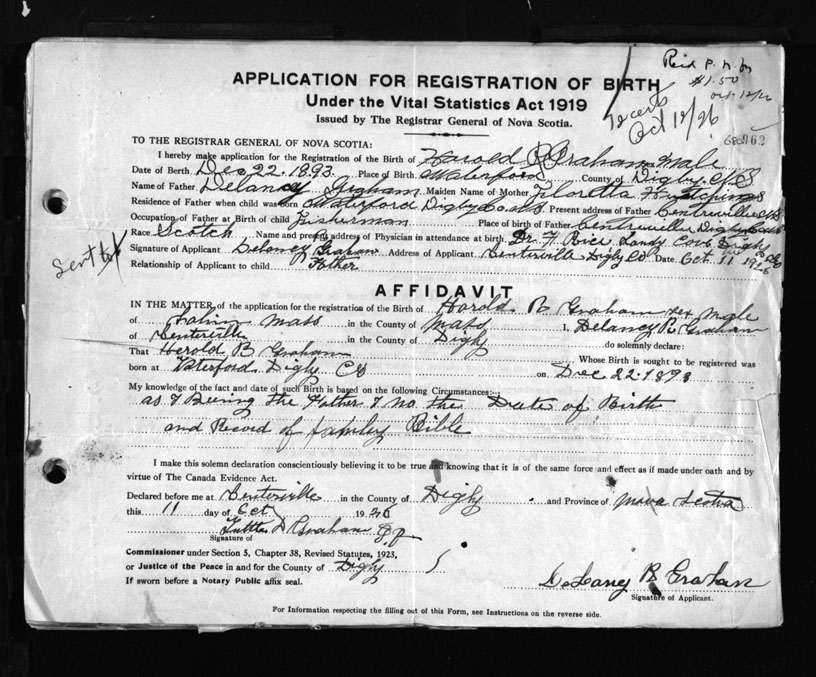 Paid P. N. M
$1.50
Oct. 12/26
12 certs
Oct 12/26
APPLICATION FOR REGISTRATION OF BIRTH
Under the Vital Statistics Act 1919
Issued by The Registrar General of Nova Scotia.
TO THE REGISTRAR GENERAL OF NOVA SCOTIA:
I hereby make application for the Registration of the Birth of Harold B Graham Male
Date of Birth. Dec 22. 1893. Place of Birth. Waterford County of Digby N.S
Name of Father Delaney Graham Maiden Name of Mother Floretta
Residence of Father when child was born Waterford Digby Co N.S Present address of Father Centreville N.S
Occupation of Father at Birth of child Fisherman Place of birth of Father Centreville Digby Co N.S
Race Scotch Name and present address of Physician in attendance at birth. Dr. F. Rice Sandy Cove Digby Co
Signature of Applicant Delaney Graham Address of Applicant Centerville Digby Co Date Oct 11 1926
Sent
Relationship of Applicant to child Father
AFFIDAVIT
IN THE MATTER of the application for the registration of the Birth of Harold B Graham sex Male
of Mass in the County of Mass I, Delaney B Graham
of Centerville in the County of Digby do solemnly declare:
That Herold B Graham Whose Birth is sought to be registered was
born at Waterford Digby Co on Dec 22. 1893
My knowledge of the fact and date of such Birth is based on the following Circumstances:
as I Beeing the Father I no the Date of Birth
and Record of family Bible
I make this solemn declaration conscientiously believing it to be true and knowing that it is of the same force and effect as if made under oath and by
virtue of The Canada Evidence Act.
Declared before me at Centerville in the County of Digby and Province of Nova Scotia
this 11 day of Oct 1926
Graham J P
Signature of
Commissioner under Section 5, Chapter 38, Revised Statutes, 1923,
or Justice of the Peace in and for the County of Digby
If sworn before a Notary Public affix seal.
DeLaney B Graham
Signature of Applicant.
For Information respecting the filling out of this Form, see Instructions on the reverse side.